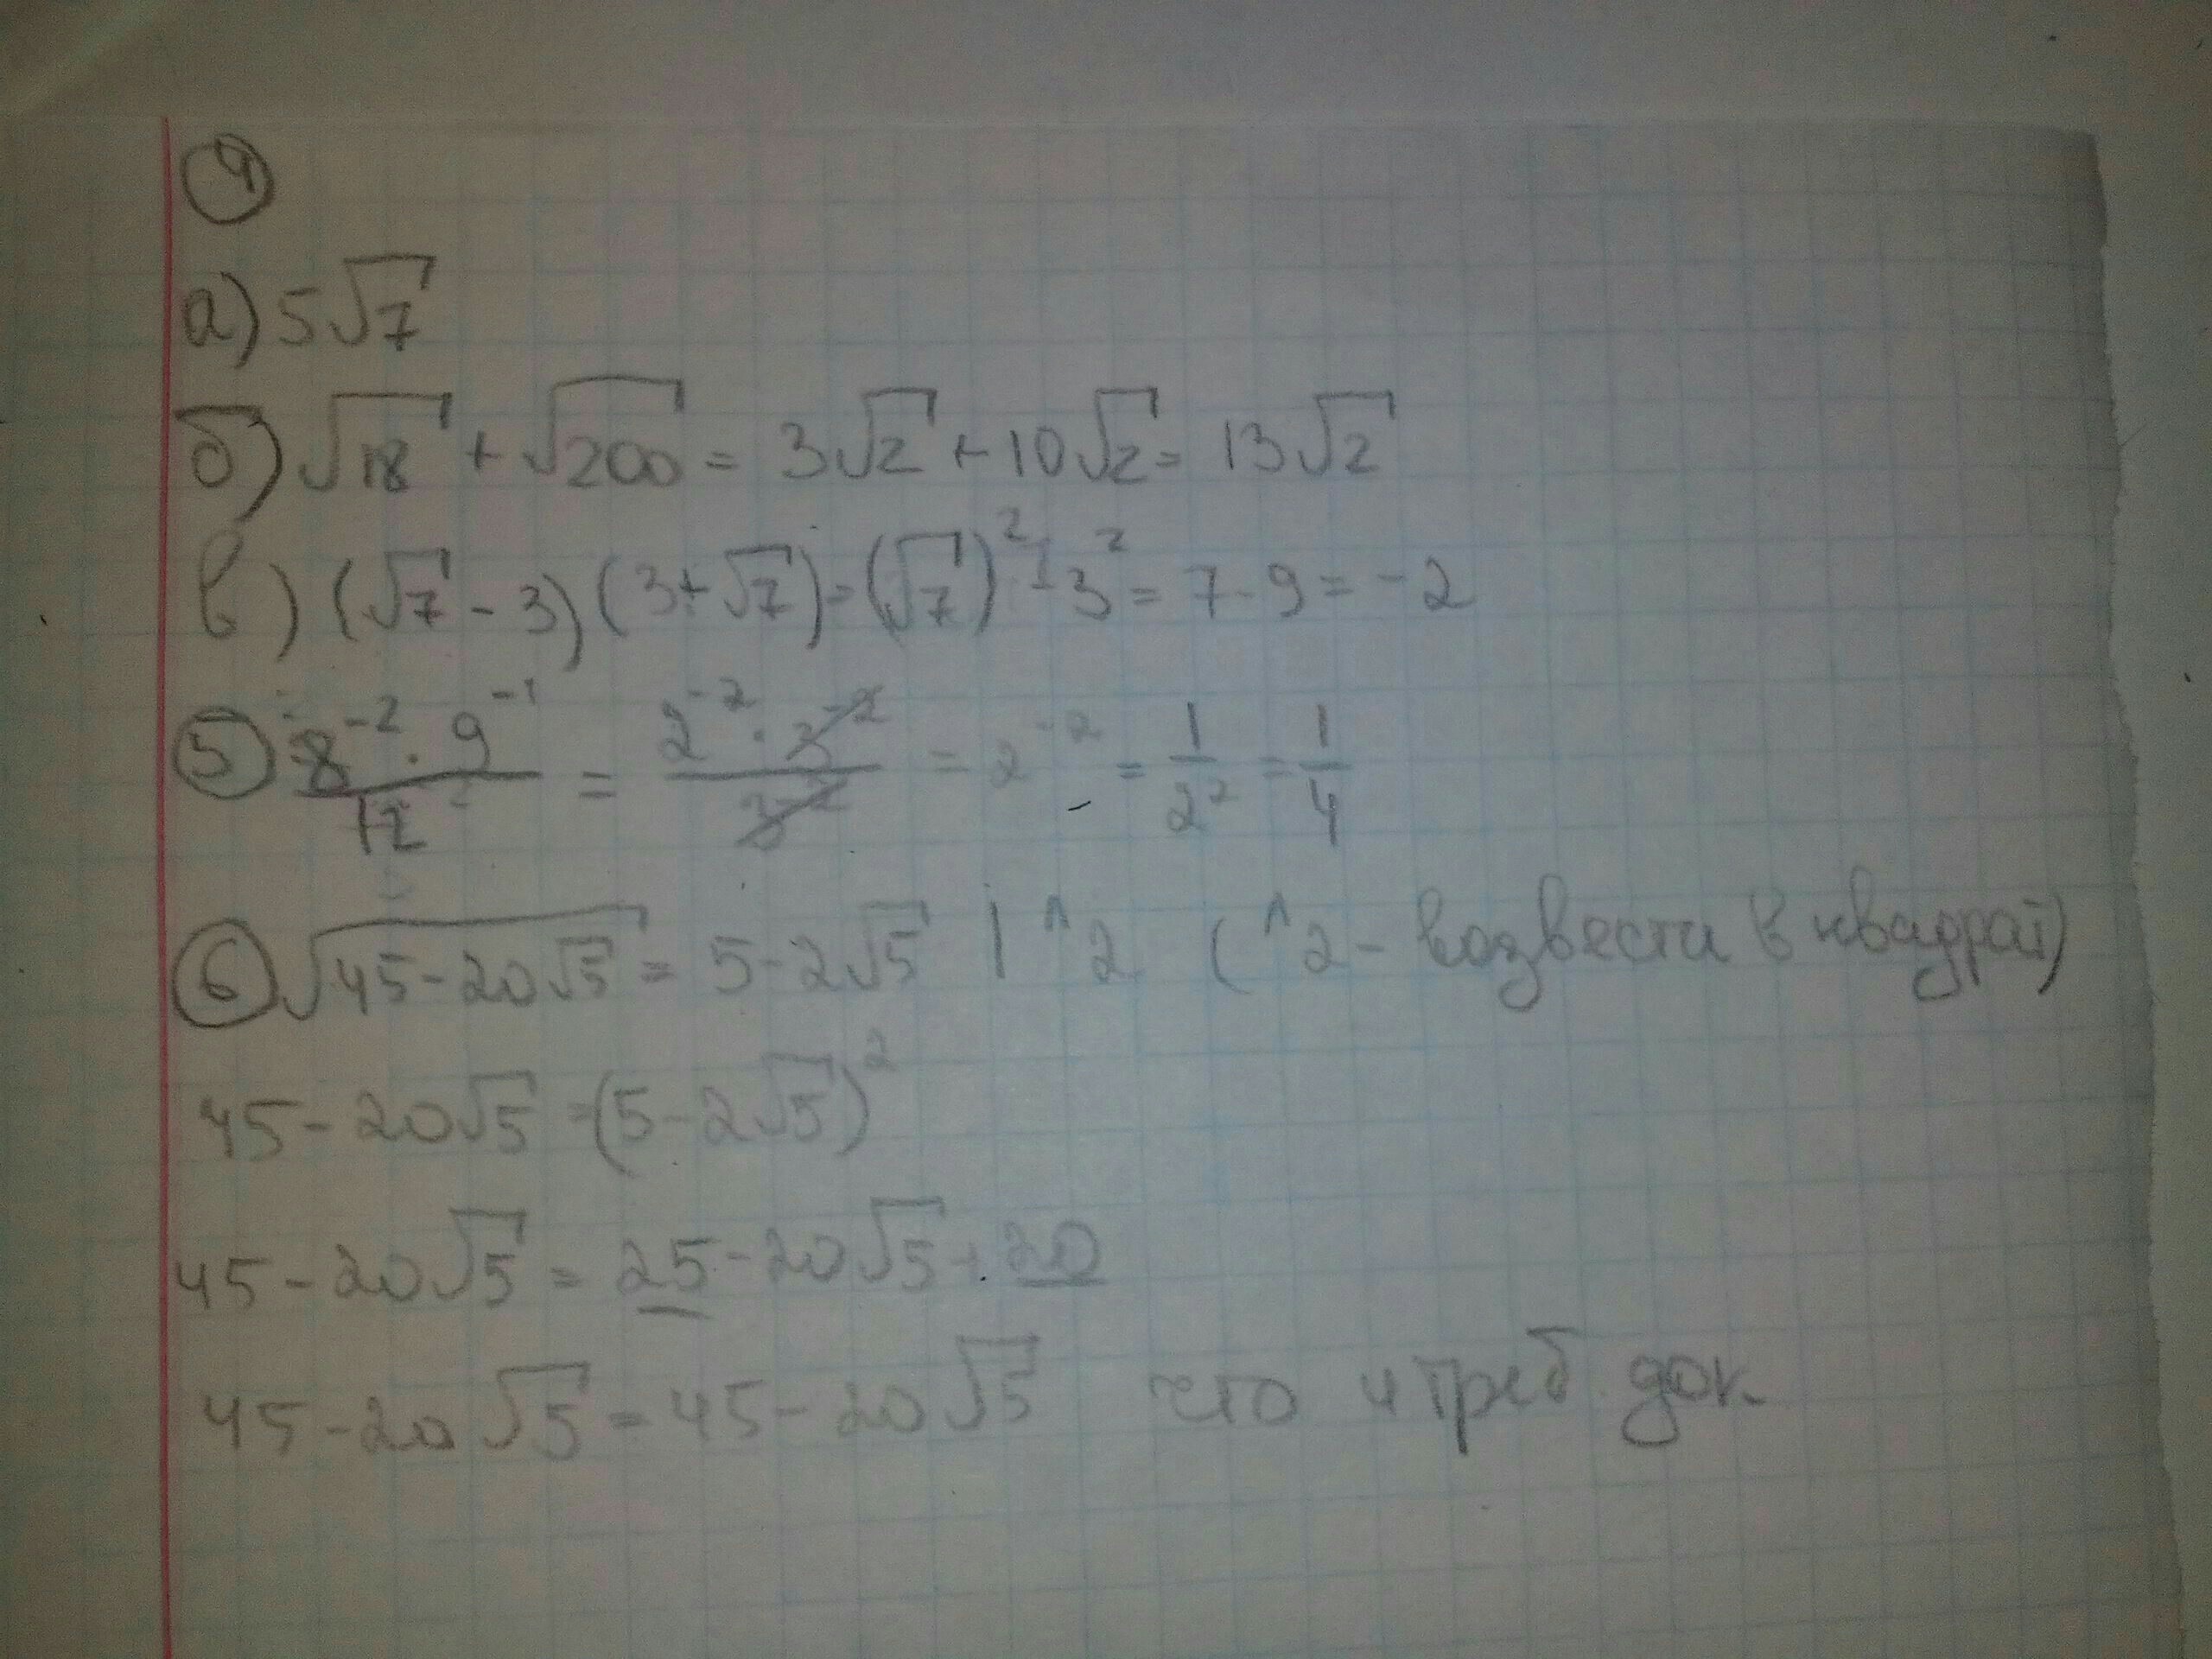 ④
а) 5√7
б) √18 + √200 = 3√2 + 10√2 = 13√2
в) (√7 - 3)(3+√7) = (√7)² - 3² = 7 - 9 = -2
⑤ (8⁻² · 9⁻¹)/12⁻² = (2⁻² · 3⁻²)/3⁻² = 2⁻² = 1/2² = 1/4
⑥ √(45 - 20√5) = 5 - 2√5 | ^2 (^2 - возвести в квадрат)
45 - 20√5 = (5 - 2√5)²
45 - 20√5 = 25 - 20√5 + 20
45 - 20√5 = 45 - 20√5 что и треб. док.